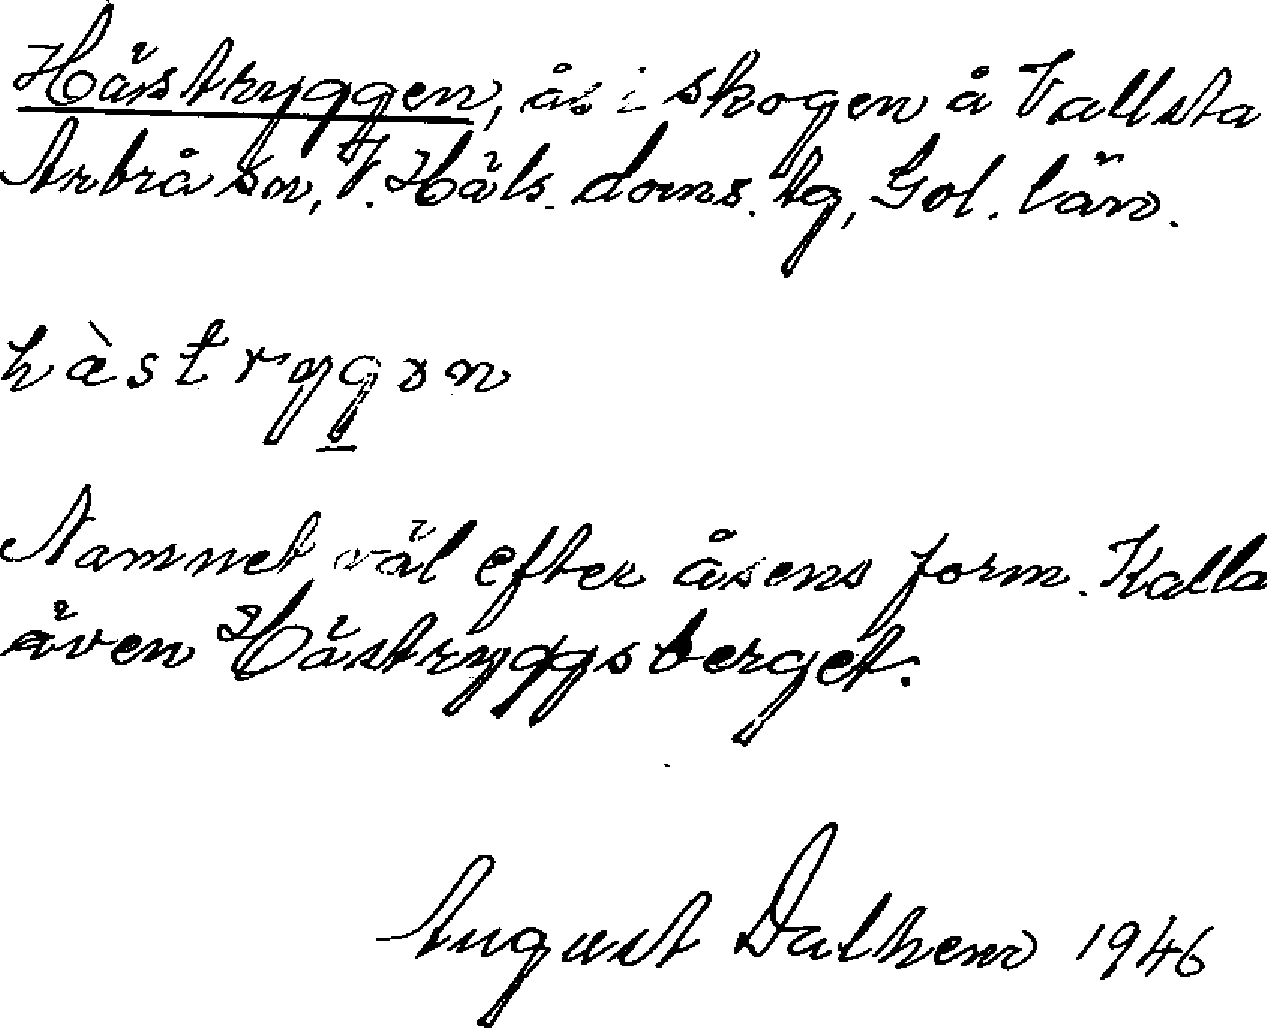 Hästryggen, ås i skogen å Vallsta
Arbrå sn, V. Häls. doms. tg, Gvl. län.
hàstrygən
Namnet väl efter åsens form. Kalla
även Hästryggsberget.
August Dalhem 1946